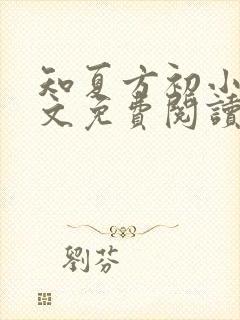 知夏方初小
文免費閱讀
劉芬